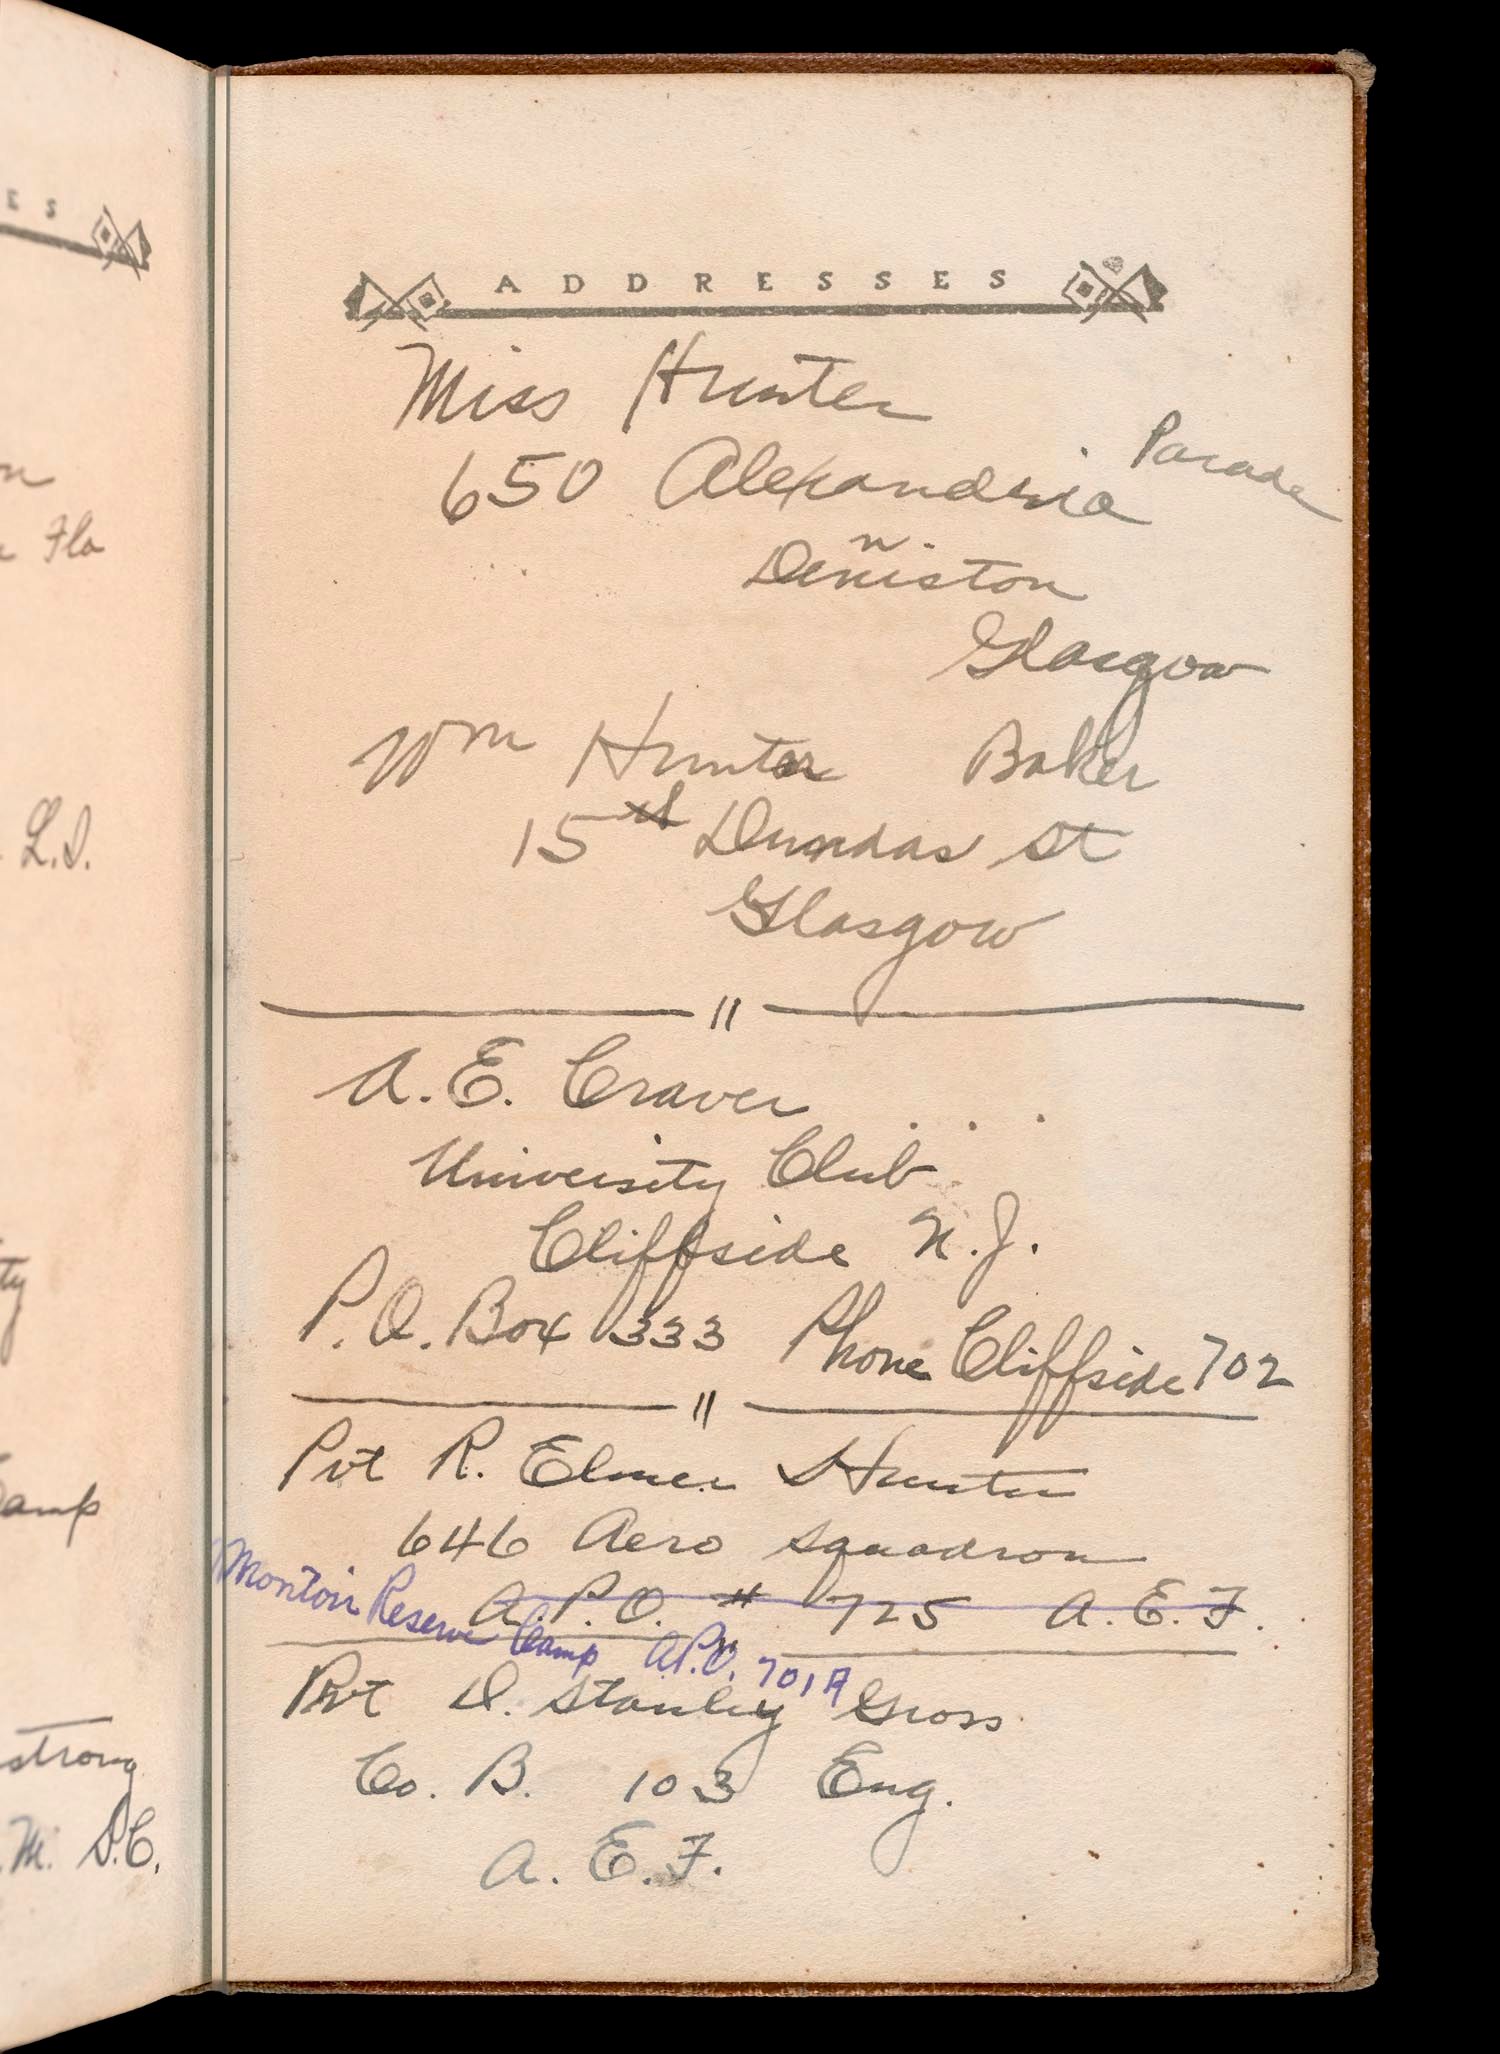 ES
Fla
L.I.
strong
M. D.C.
ADDRESSES
Miss Hunter
650 Alexandria Parade
Denniston
Glasgow
Wm Hunter Baker
15 Dundas St
Glasgow
"
A. E. Craver
University Club
Cliffside N.J.
P.O. Box 333 Phone Cliffside 702
"
Pvt R. Elmer Hunter
646 Aero Squadron
A.P.O. # 725 A.E.F.
Montoir Reserve Camp A.P.O. 701A
Pvt D. Stanley Gross
Co. B. 103 Eng.
A. E. F.